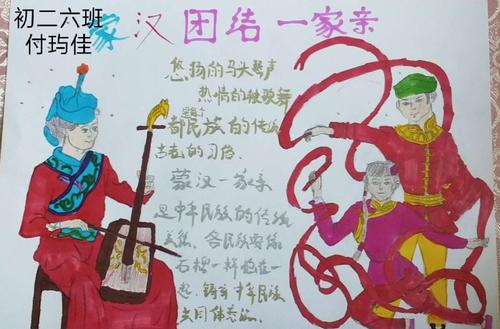 初二六班
付玙佳
蒙汉团结一家亲
悠扬的马头琴声
热情的秧歌舞
是每个
都民族的传统
古老的习俗
蒙汉一家亲
是中华民族的传统
美德、各民族要像
石榴一样抱在一
起、铸牢中华民族
共同体意识。